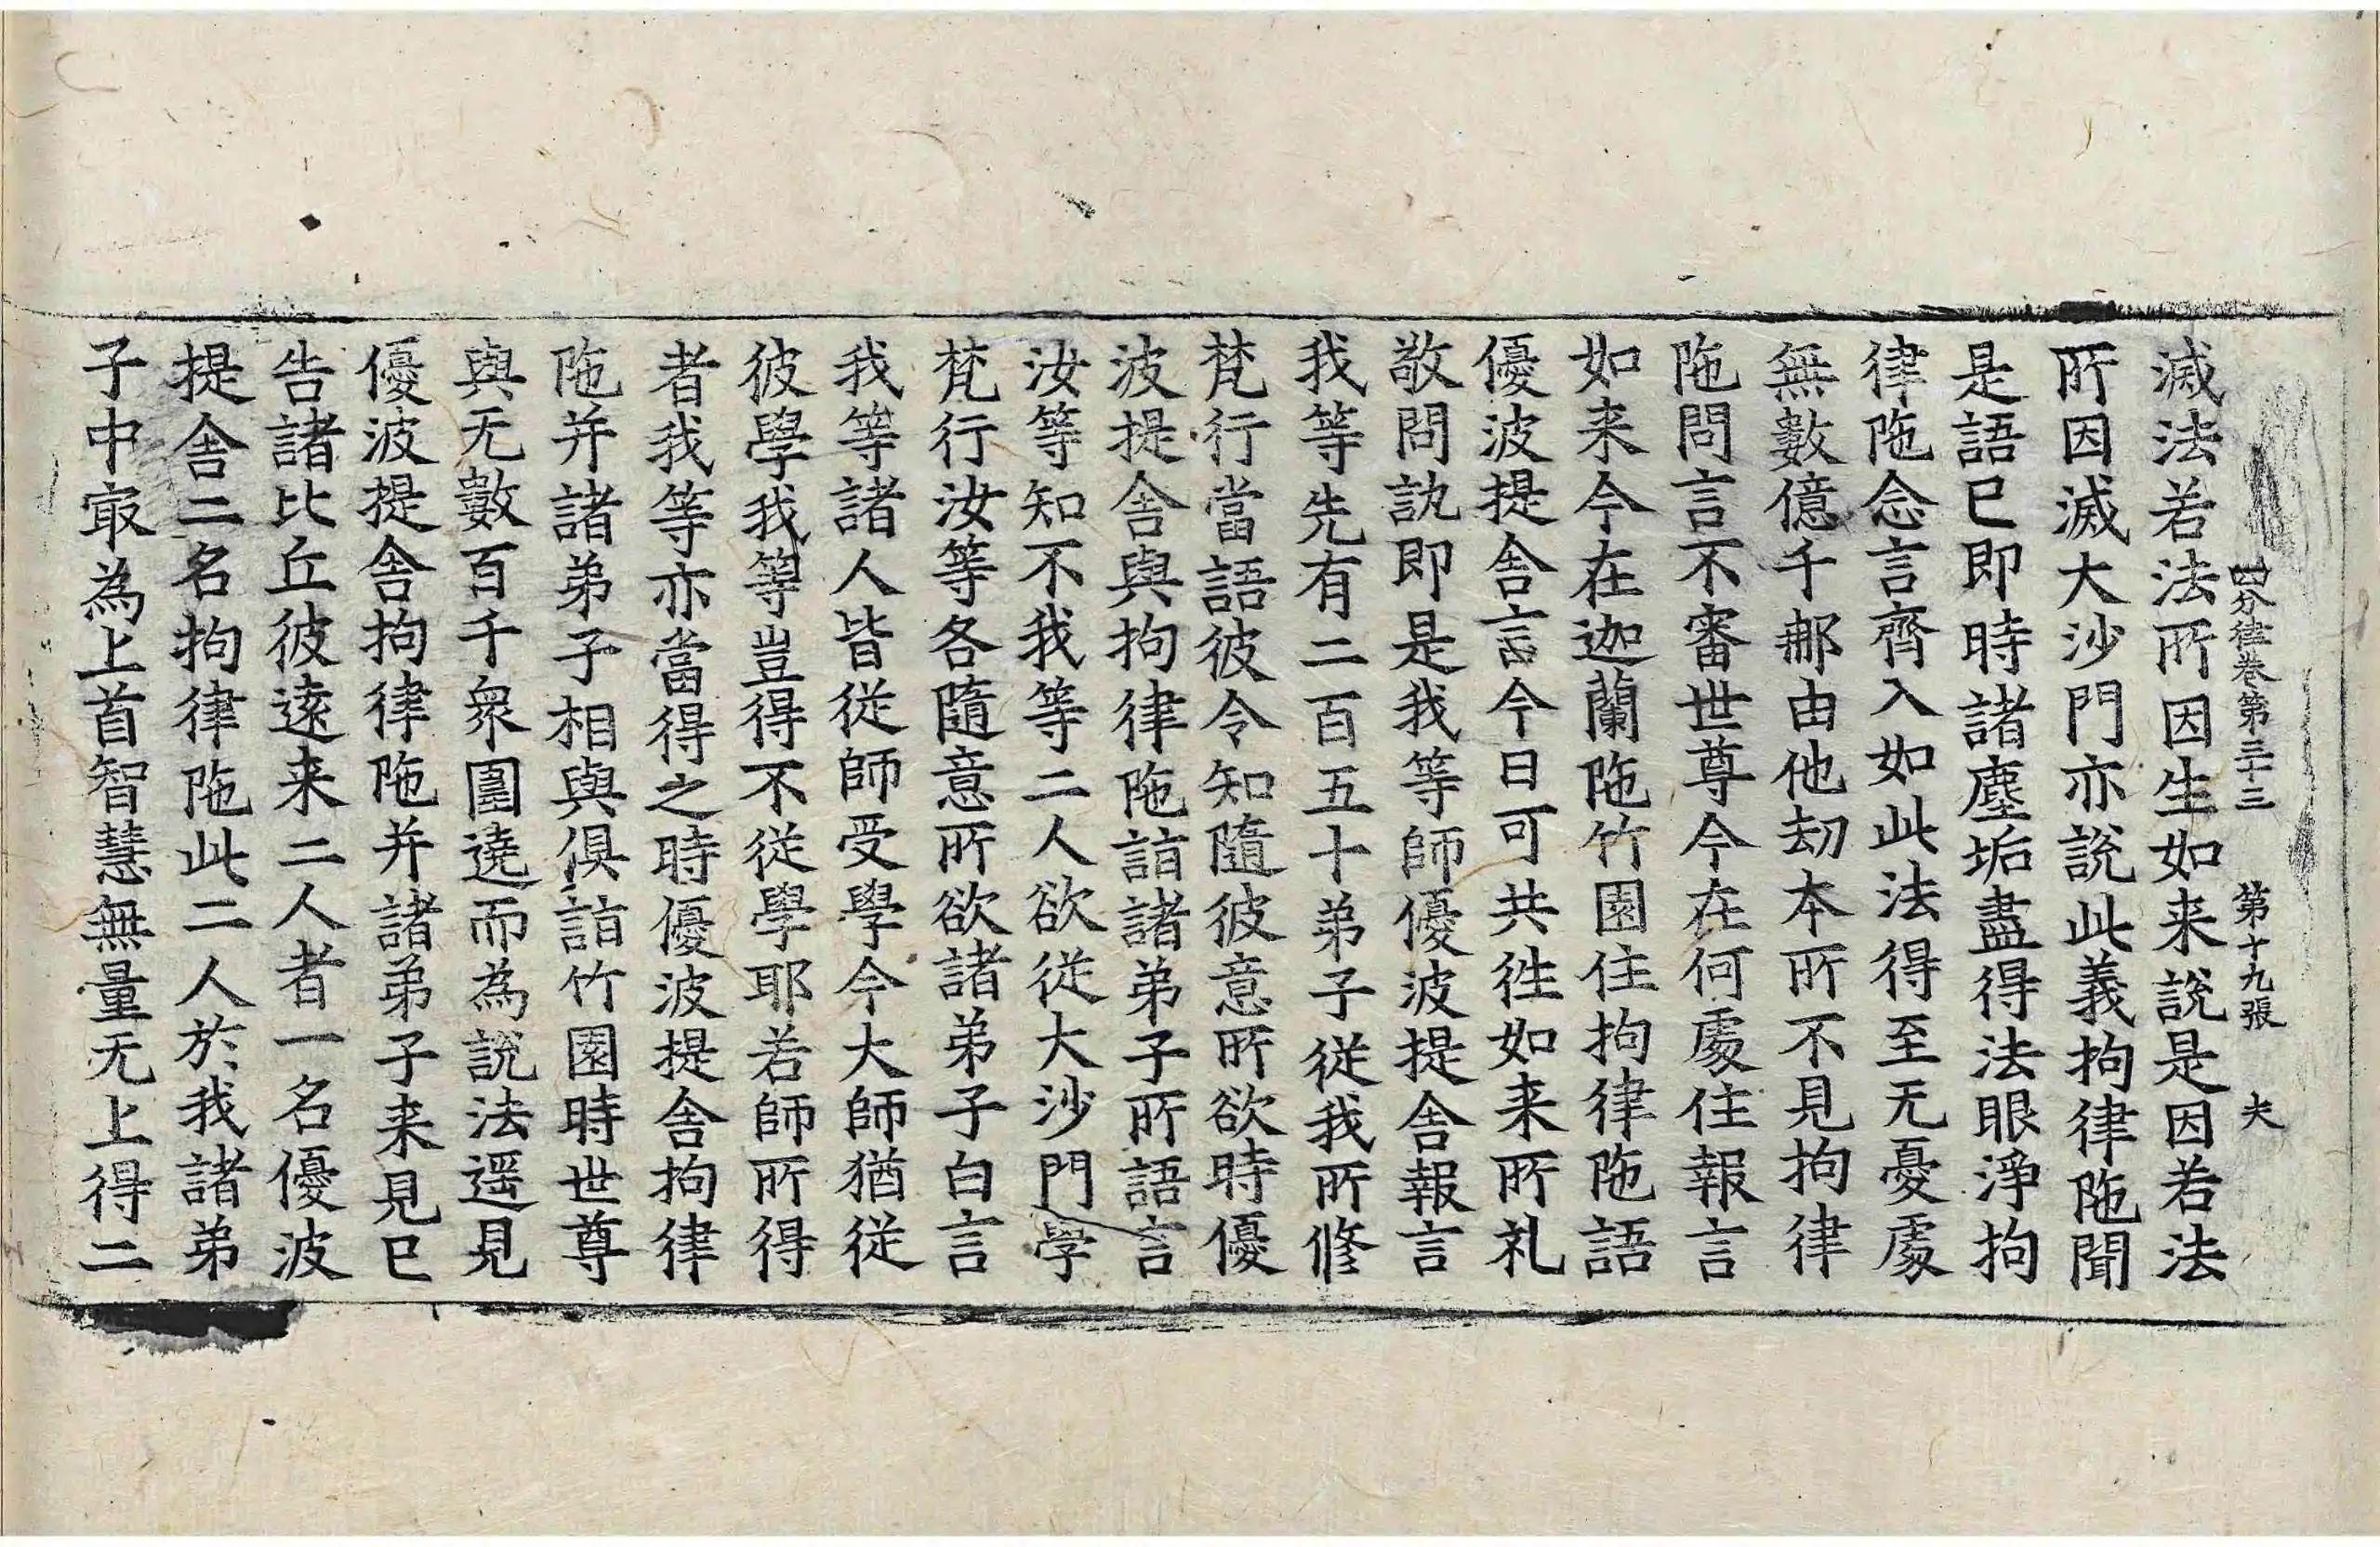 四分律卷第三十三 第十九張 夫
滅法若法所因生如来說是因若法
所因滅大沙門亦說此義拘律陁聞
是語已即時諸塵垢盡得法眼淨拘
律陁念言齊入如此法得至无憂處
無數億千那由他劫本所不見拘律
陁問言不審世尊今在何處住報言
如来今在迦蘭陁竹園住拘律陁語
優波提舍言今日可共徃如来所礼
敬問訊即是我等師優波提舍報言
我等先有二百五十弟子從我所修
梵行當語彼令知隨彼意所欲時優
波提舍與拘律陁詣諸弟子所語言
汝等知不我等二人欲從大沙門學
梵行汝等各隨意所欲諸弟子白言
我等諸人皆從師受學今大師猶從
彼學我等豈得不從學耶若師所得
者我等亦當得之時優波提舍拘律
陁并諸弟子相與俱詣竹園時世尊
與无數百千衆圍遶而為說法遥見
優波提舍拘律陁并諸弟子来見已
告諸比丘彼遠来二人者一名優波
提舍二名拘律陁此二人於我諸弟
子中冣為上首智慧無量无上得二